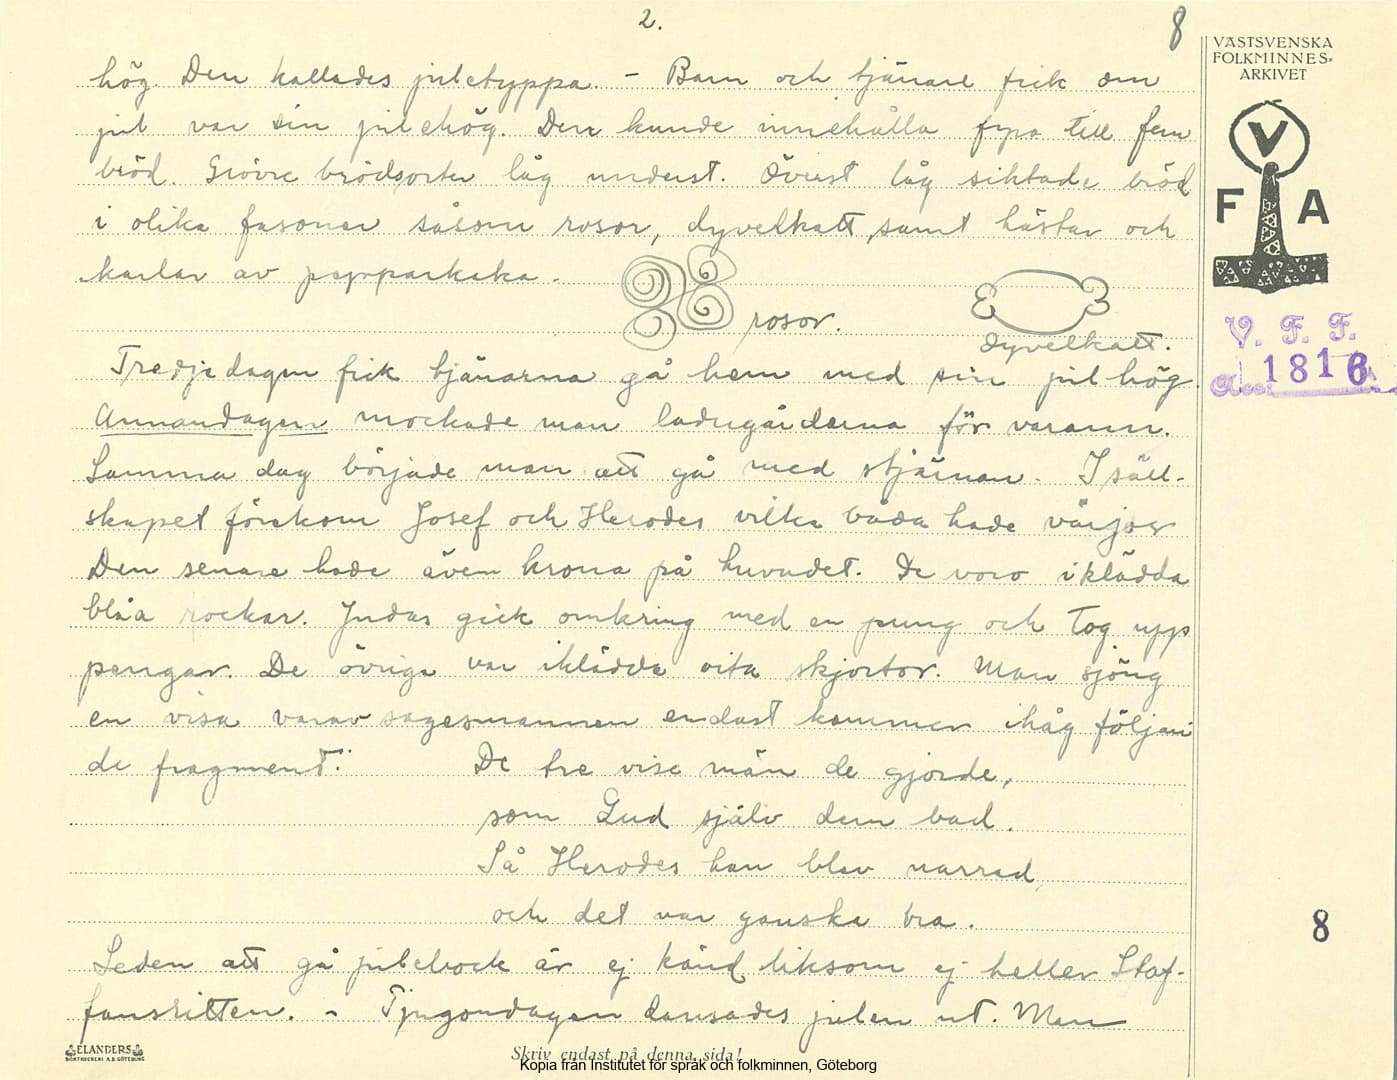 2.
8
VÄSTSVENSKA
FOLKMINNES-
ARKIVET
V
F A
V. F. F.
Acc. 1816
hög. Den kallades juletyppa. – Barn och tjänare fick om
jul var sin julehög. Den kunde innehålla fyra till fem
bröd. Grövre brödsorter låg underst. Överst låg siktade bröd
i olika fasoner såsom rosor, dyvelkatt, samt hästar och
karlar av pepparkaka.
rosor.
dyvelkatt.
Tredje dagen fick tjänarna gå hem med sin julhög.
Annandagen mockade man ladugårdarna för varann.
Samma dag började man att gå med stjärnan. I säll-
skapet förekom Josef och Herodes vilka båda hade värjor
Den senare hade även krona på huvudet. De voro iklädda
blåa rockar. Judas gick omkring med en pung och tog upp
pengar. De övriga var iklädda vita skjortor. Man sjöng
en visa varav sagesmannen endast kommer ihåg följan
de fragment: De tre vise män de gjorde,
som Gud själv dem bad.
Så Herodes han blev narrad,
och det var ganska bra.
Seden att gå julebock är ej känd liksom ej heller Staf-
fansritten. – Tjugondagen dansades julen ut. Man
8
ELANDERS
BOKTRYCKERI A.B. GÖTEBORG
Skriv endast på denna sida!
Kopia från Institutet för språk och folkminnen, Göteborg